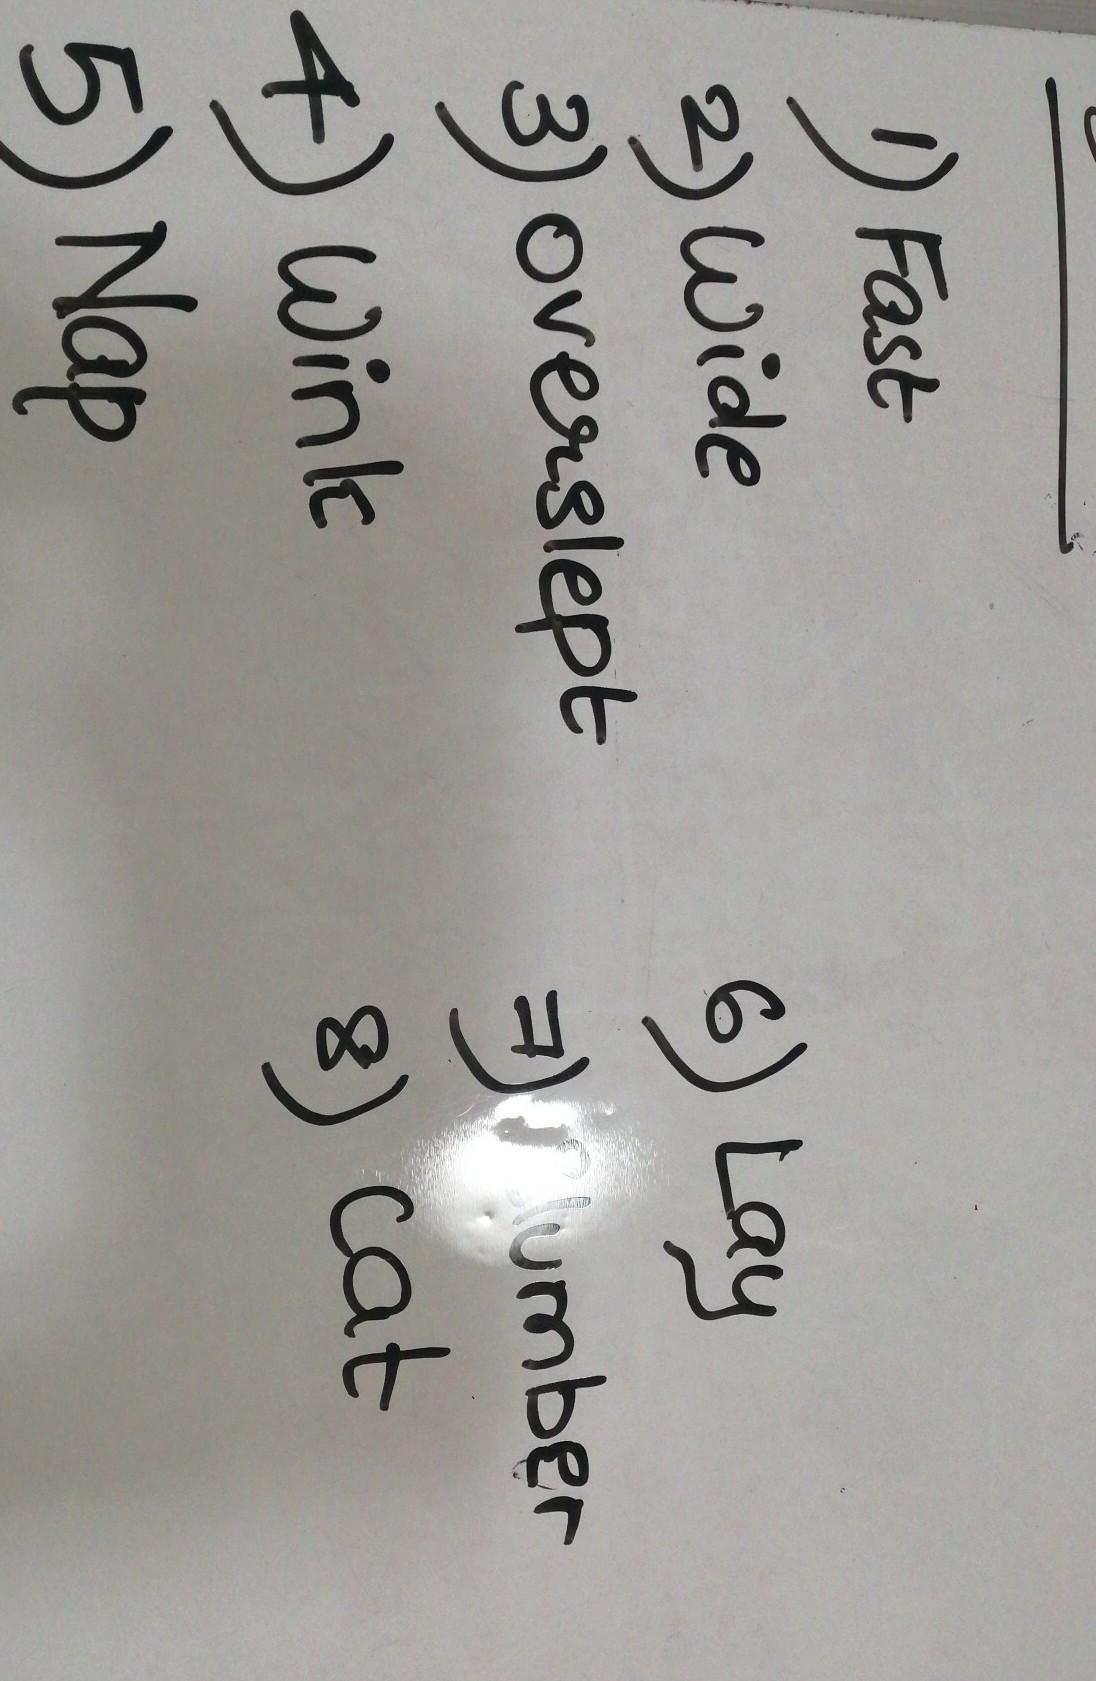 1) Fast
2) Wide
3) overslept
4) Wink
5) Nap
6) Lay
7) Slumber
8) Cat